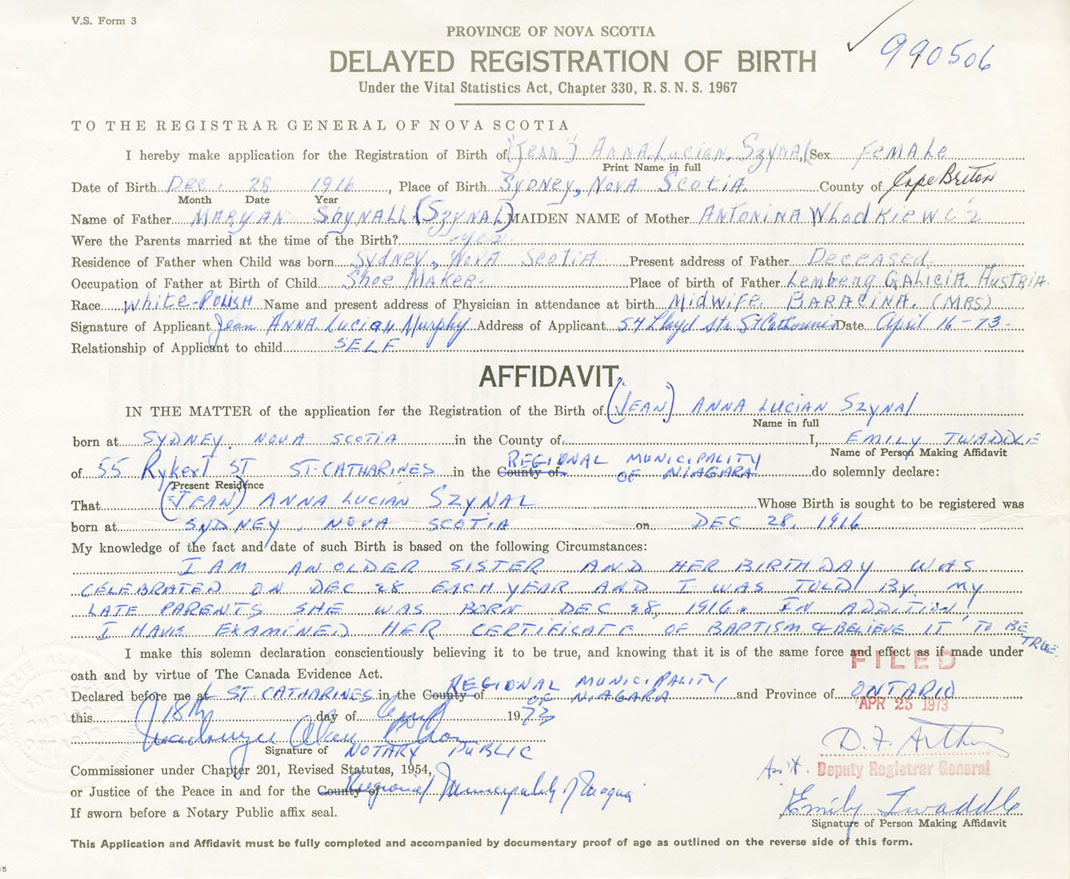 V.S. Form 3
PROVINCE OF NOVA SCOTIA
990506
DELAYED REGISTRATION OF BIRTH
Under the Vital Statistics Act, Chapter 330, R.S.N.S. 1967
TO THE REGISTRAR GENERAL OF NOVA SCOTIA
I hereby make application for the Registration of Birth of (JEAN) ANNA LUCIAN SZYNAL Sex FEMALE
Print Name in full
Date of Birth DEC. 28 1916, Place of Birth SYDNEY, NOVA SCOTIA County of Cape Breton
Month Date Year
Name of Father MARYAN SHYNALL (SZYNAL) MAIDEN NAME of Mother ANTONINA WLODKIEWCZ
Were the Parents married at the time of the Birth? yes
Residence of Father when Child was born SYDNEY, NOVA SCOTIA Present address of Father DECEASED
Occupation of Father at Birth of Child SHOE MAKER. Place of birth of Father Lemberg GALICIA AUSTRIA.
Race WHITE-POLISH Name and present address of Physician in attendance at birth MIDWIFE. BARACINA. (MRS)
Signature of Applicant Jean ANNA Lucian Murphy Address of Applicant 54 Lloyd str St Catharines Date April 16-73-
Relationship of Applicant to child SELF
AFFIDAVIT
IN THE MATTER of the application for the Registration of the Birth of (JEAN) ANNA LUCIAN SZYNAL
Name in full
born at SYDNEY. NOVA SCOTIA in the County of I, EMILY TWADDLE
Name of Person Making Affidavit
of 55 Rykert ST ST-CATHARINES in the County of REGIONAL MUNICIPALITY OF NIAGARA do solemnly declare:
Present Residence
That (JEAN) ANNA LUCIAN SZYNAL Whose Birth is sought to be registered was
born at SYDNEY. NOVA SCOTIA on DEC 28, 1916
My knowledge of the fact and date of such Birth is based on the following Circumstances:
I AM AN OLDER SISTER AND HER BIRTHDAY WAS
CELEBRATED ON DEC 28 EACH YEAR AND I WAS TOLD BY MY
LATE PARENTS, SHE WAS BORN DEC 28, 1916. IN ADDITION,
I HAVE EXAMINED HER CERTIFICATE OF BAPTISM & BELIEVE IT TO BE TRUE.
I make this solemn declaration conscientiously believing it to be true, and knowing that it is of the same force and effect as if made under
FILED
oath and by virtue of The Canada Evidence Act.
Declared before me at ST. CATHARINES in the County of REGIONAL MUNICIPALITY OF NIAGARA and Province of ONTARIO
APR 25 1973
this 18th day of April 1973
Signature of NOTARY PUBLIC
D. F. Arthur
Ass't. Deputy Registrar General
Commissioner under Chapter 201, Revised Statutes, 1954,
or Justice of the Peace in and for the County of Regional Municipality of Niagara
Emily Twaddle
Signature of Person Making Affidavit
If sworn before a Notary Public affix seal.
This Application and Affidavit must be fully completed and accompanied by documentary proof of age as outlined on the reverse side of this form.